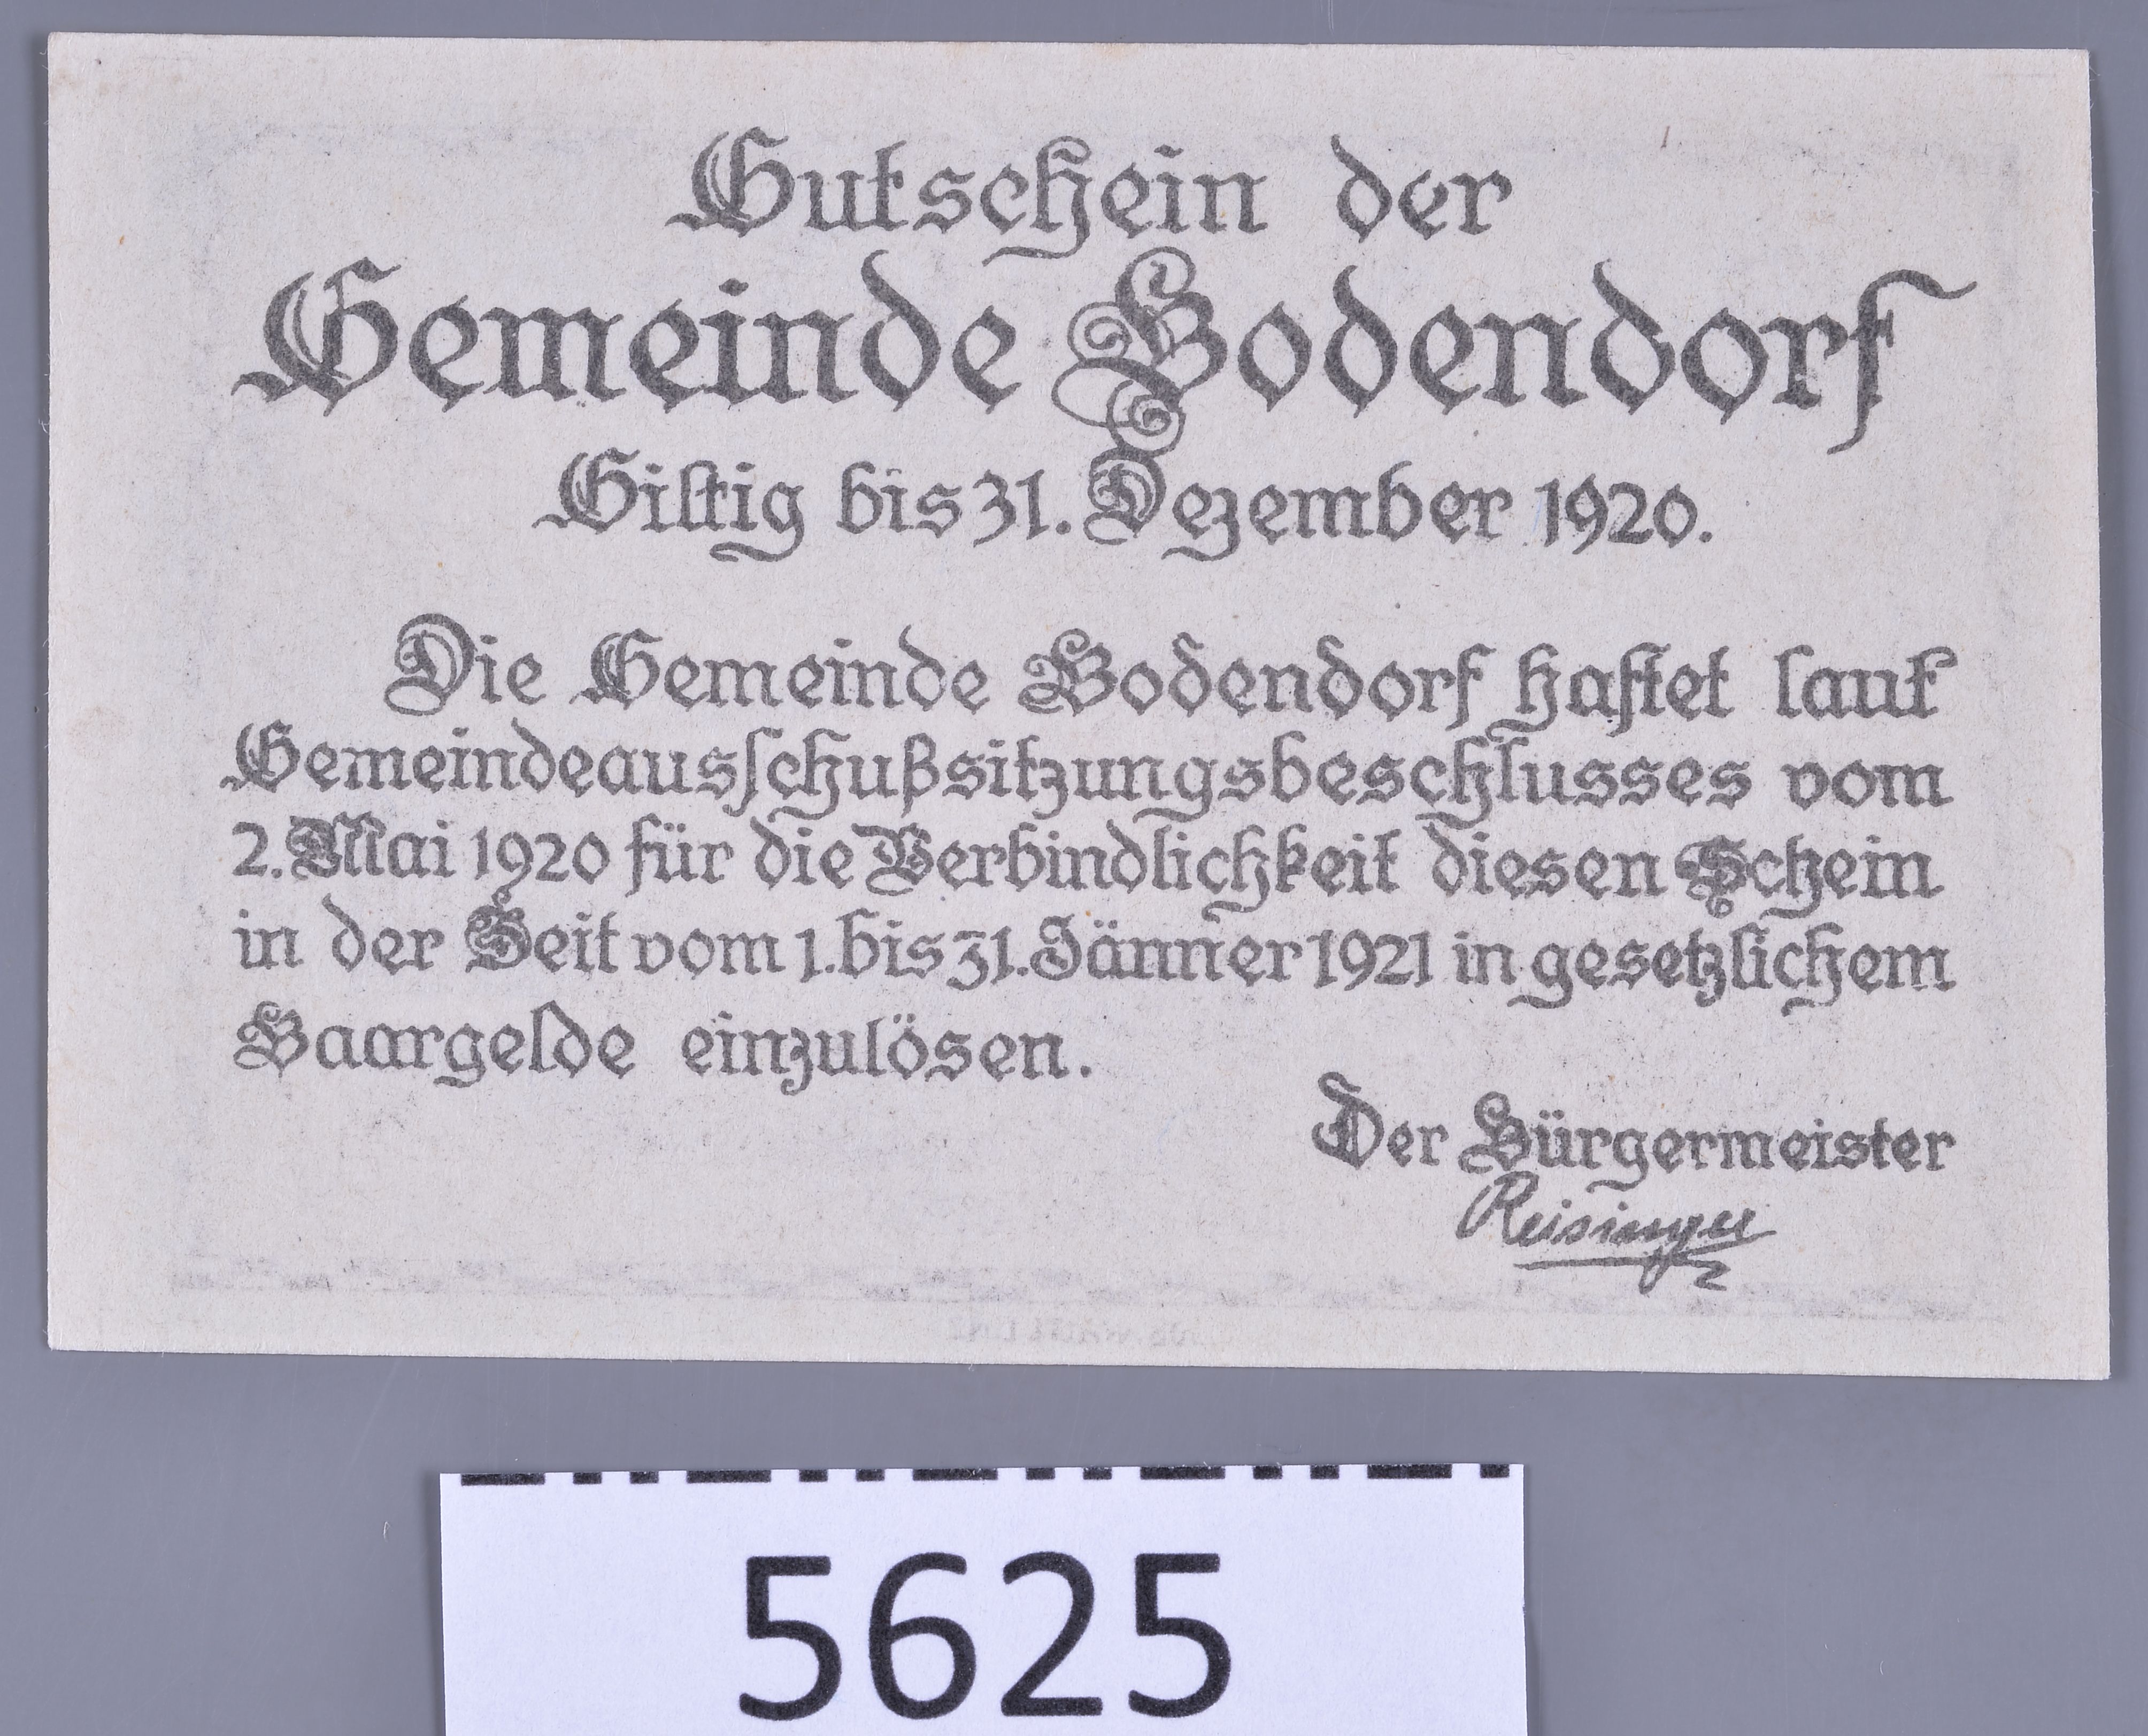 Gutschein der
Gemeinde Bodendorf
Giltig bis 31. Dezember 1920.
Die Gemeinde Bodendorf haftet laut
Gemeindeausschußsitzungsbeschlusses vom
2. Mai 1920 für die Verbindlichkeit diesen Schein
in der Zeit vom 1. bis 31. Jänner 1921 in gesetzlichem
Baargelde einzulösen.
Der Bürgermeister
Reisinger
5625